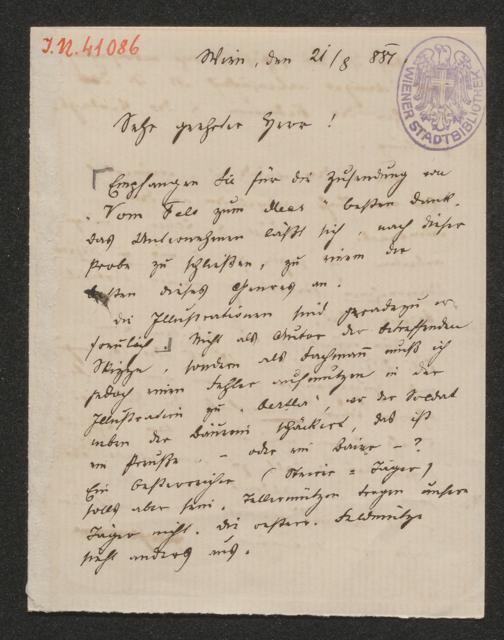 J. N. 41086
WIENER STADTBIBLIOTHEK
Wien, den 21/8 887
Sehr geehrter Herr!
Empfangen Sie für die Zusendung von
"Vom Fels zum Meer" besten Dank.
Das Unternehmen läßt sich, nach dieser
Probe zu schließen, zu einem der
besten dieses Genres an.
Die Illustrationen sind geradezu er-
freulich. Nicht als Autor der betreffenden
Skizze, sondern als Fachmann muß ich
jedoch einen Fehler aufmutzen in der
Illustration zu, wo der Soldat
neben der Bäuerin schäkert, das ist
ein Preuße – oder ein Baier – ?
Ein Oesterreicher (Steirer = Jäger)
solls aber sein. Tellermützen tragen unsere
Jäger nicht. Die oesterr. Feldmütze
sieht anders aus.